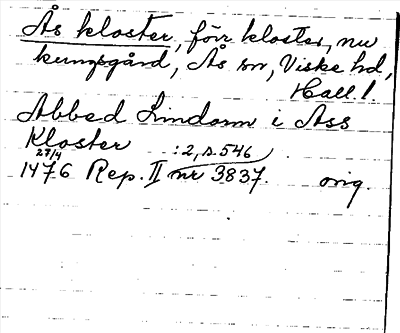 Ås kloster, förr kloster, nu
kungsgård, Ås sn, Viske hd,
Hall.!
Abbed Lindorm i Ass
Kloster :2, s. 546
27/4
1476 Rep. II nr 3837. orig.